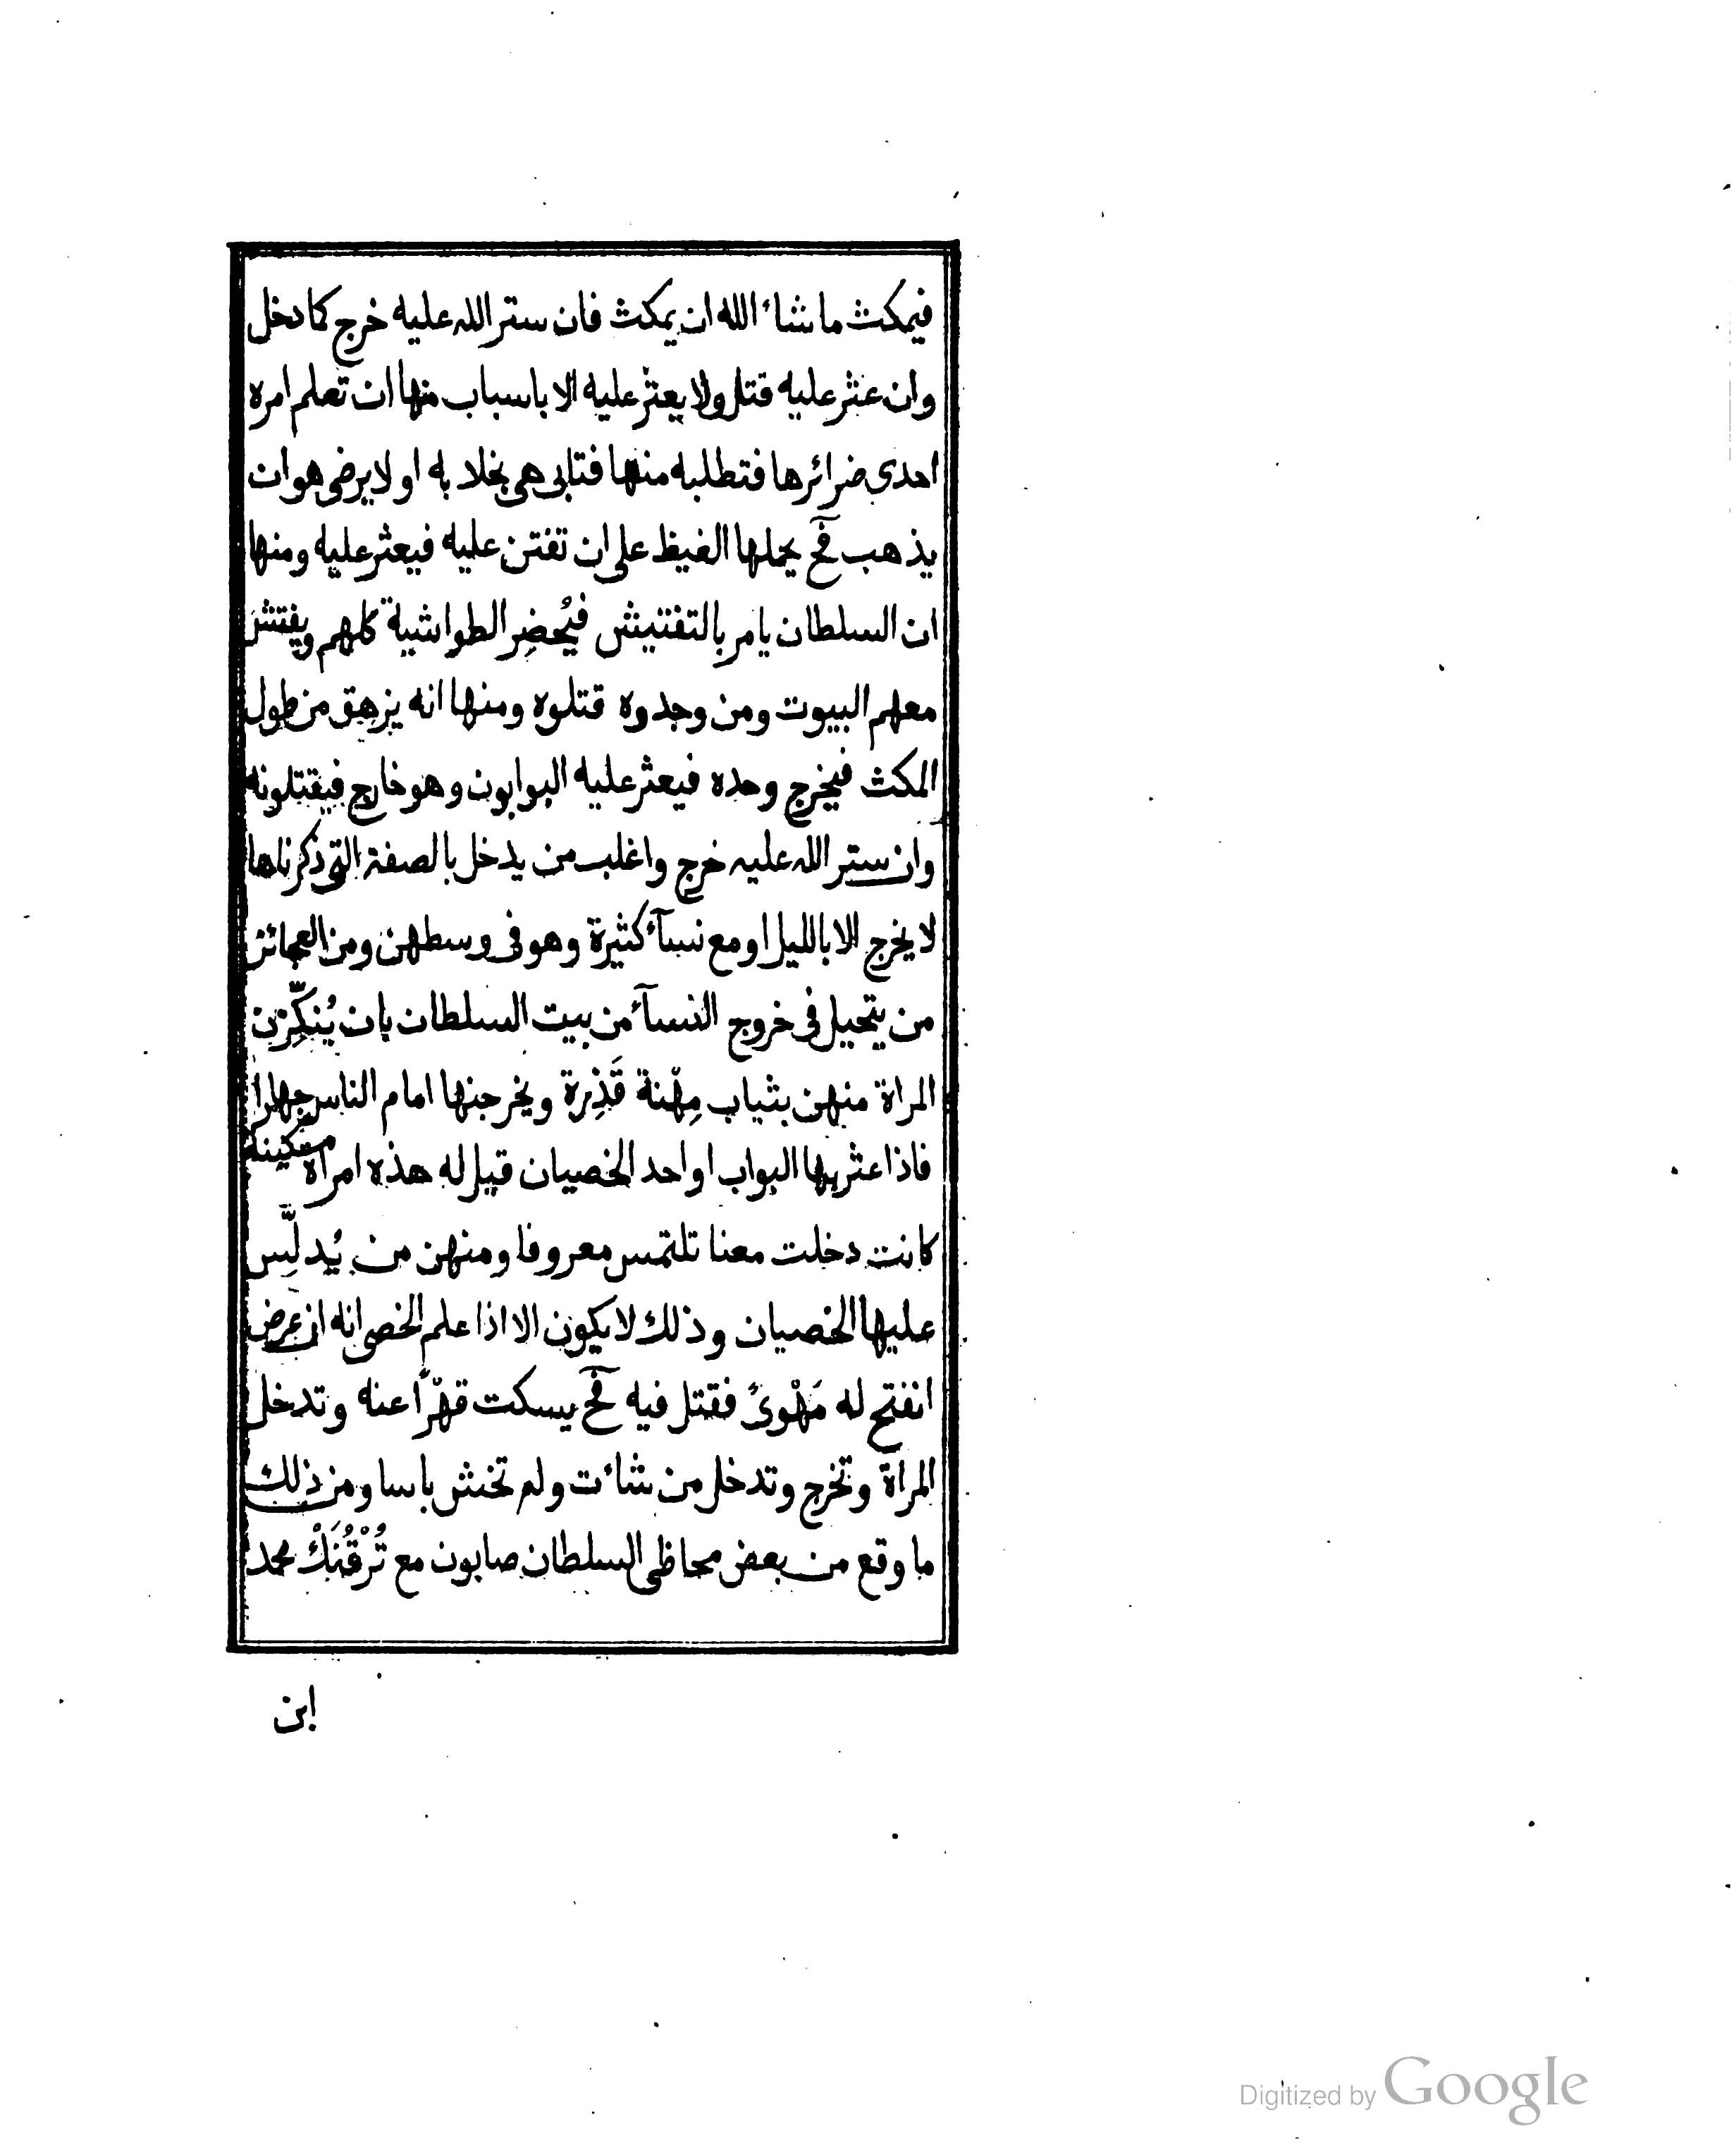 فيمكث ما شاء الله ان يمكث فان ستر الله عليه خرج كما دخل
وان عثر عليه قتل ولا يعثر عليه الا باسباب منها ان تعلم امره
احدى ضرائرها فتطلبه منها فتابى هى بخلا به او لا يرضى هو ان
يذهب فحٓ يحملها الغيظ على ان تفتن عليه فيعثر عليه ومنها
ان السلطان يامر بالتفتيش فيُحضِر الطواشية كلهم ويفتش
معهم البيوت ومن وجدوه قتلوه ومنها انه يزهق من طول
المكث فيخرج وحده فيعثر عليه البوابون وهو خارج فيقتلونه
وان ستر الله عليه خرج واغلب من يدخل بالصفة التى ذكرناها
لا يخرج الا بالليل او مع نسآء كثيرة وهو فى وسطهن ومن العجائز
من يتحيل فى خروج النسآء من بيت السلطان بان يُنكِّرْن
المراة منهن بثياب مِهْنة قَذِرة ويخرجنها امام الناس جهارا
فاذا عثر بها البواب او احد الخصيان قيل له هذه امراة مسكينة
كانت دخلت معنا تلتمس معروفا ومنهن من يُدلِّس
عليها الخصيان وذلك لا يكون الا اذا علم الخصى انه ان عرض
انفتح له مَهْوىً فقتل فيه فحٓ يسكت قهْرًا عنه وتدخل
المراة وتخرج وتدخل من شاءت ولم تخش باسا ومن ذلك
ما وقع من بعض محاظى السلطان صابون مع تُرْقُنَكْ محمد
ابن
Digitized by Google